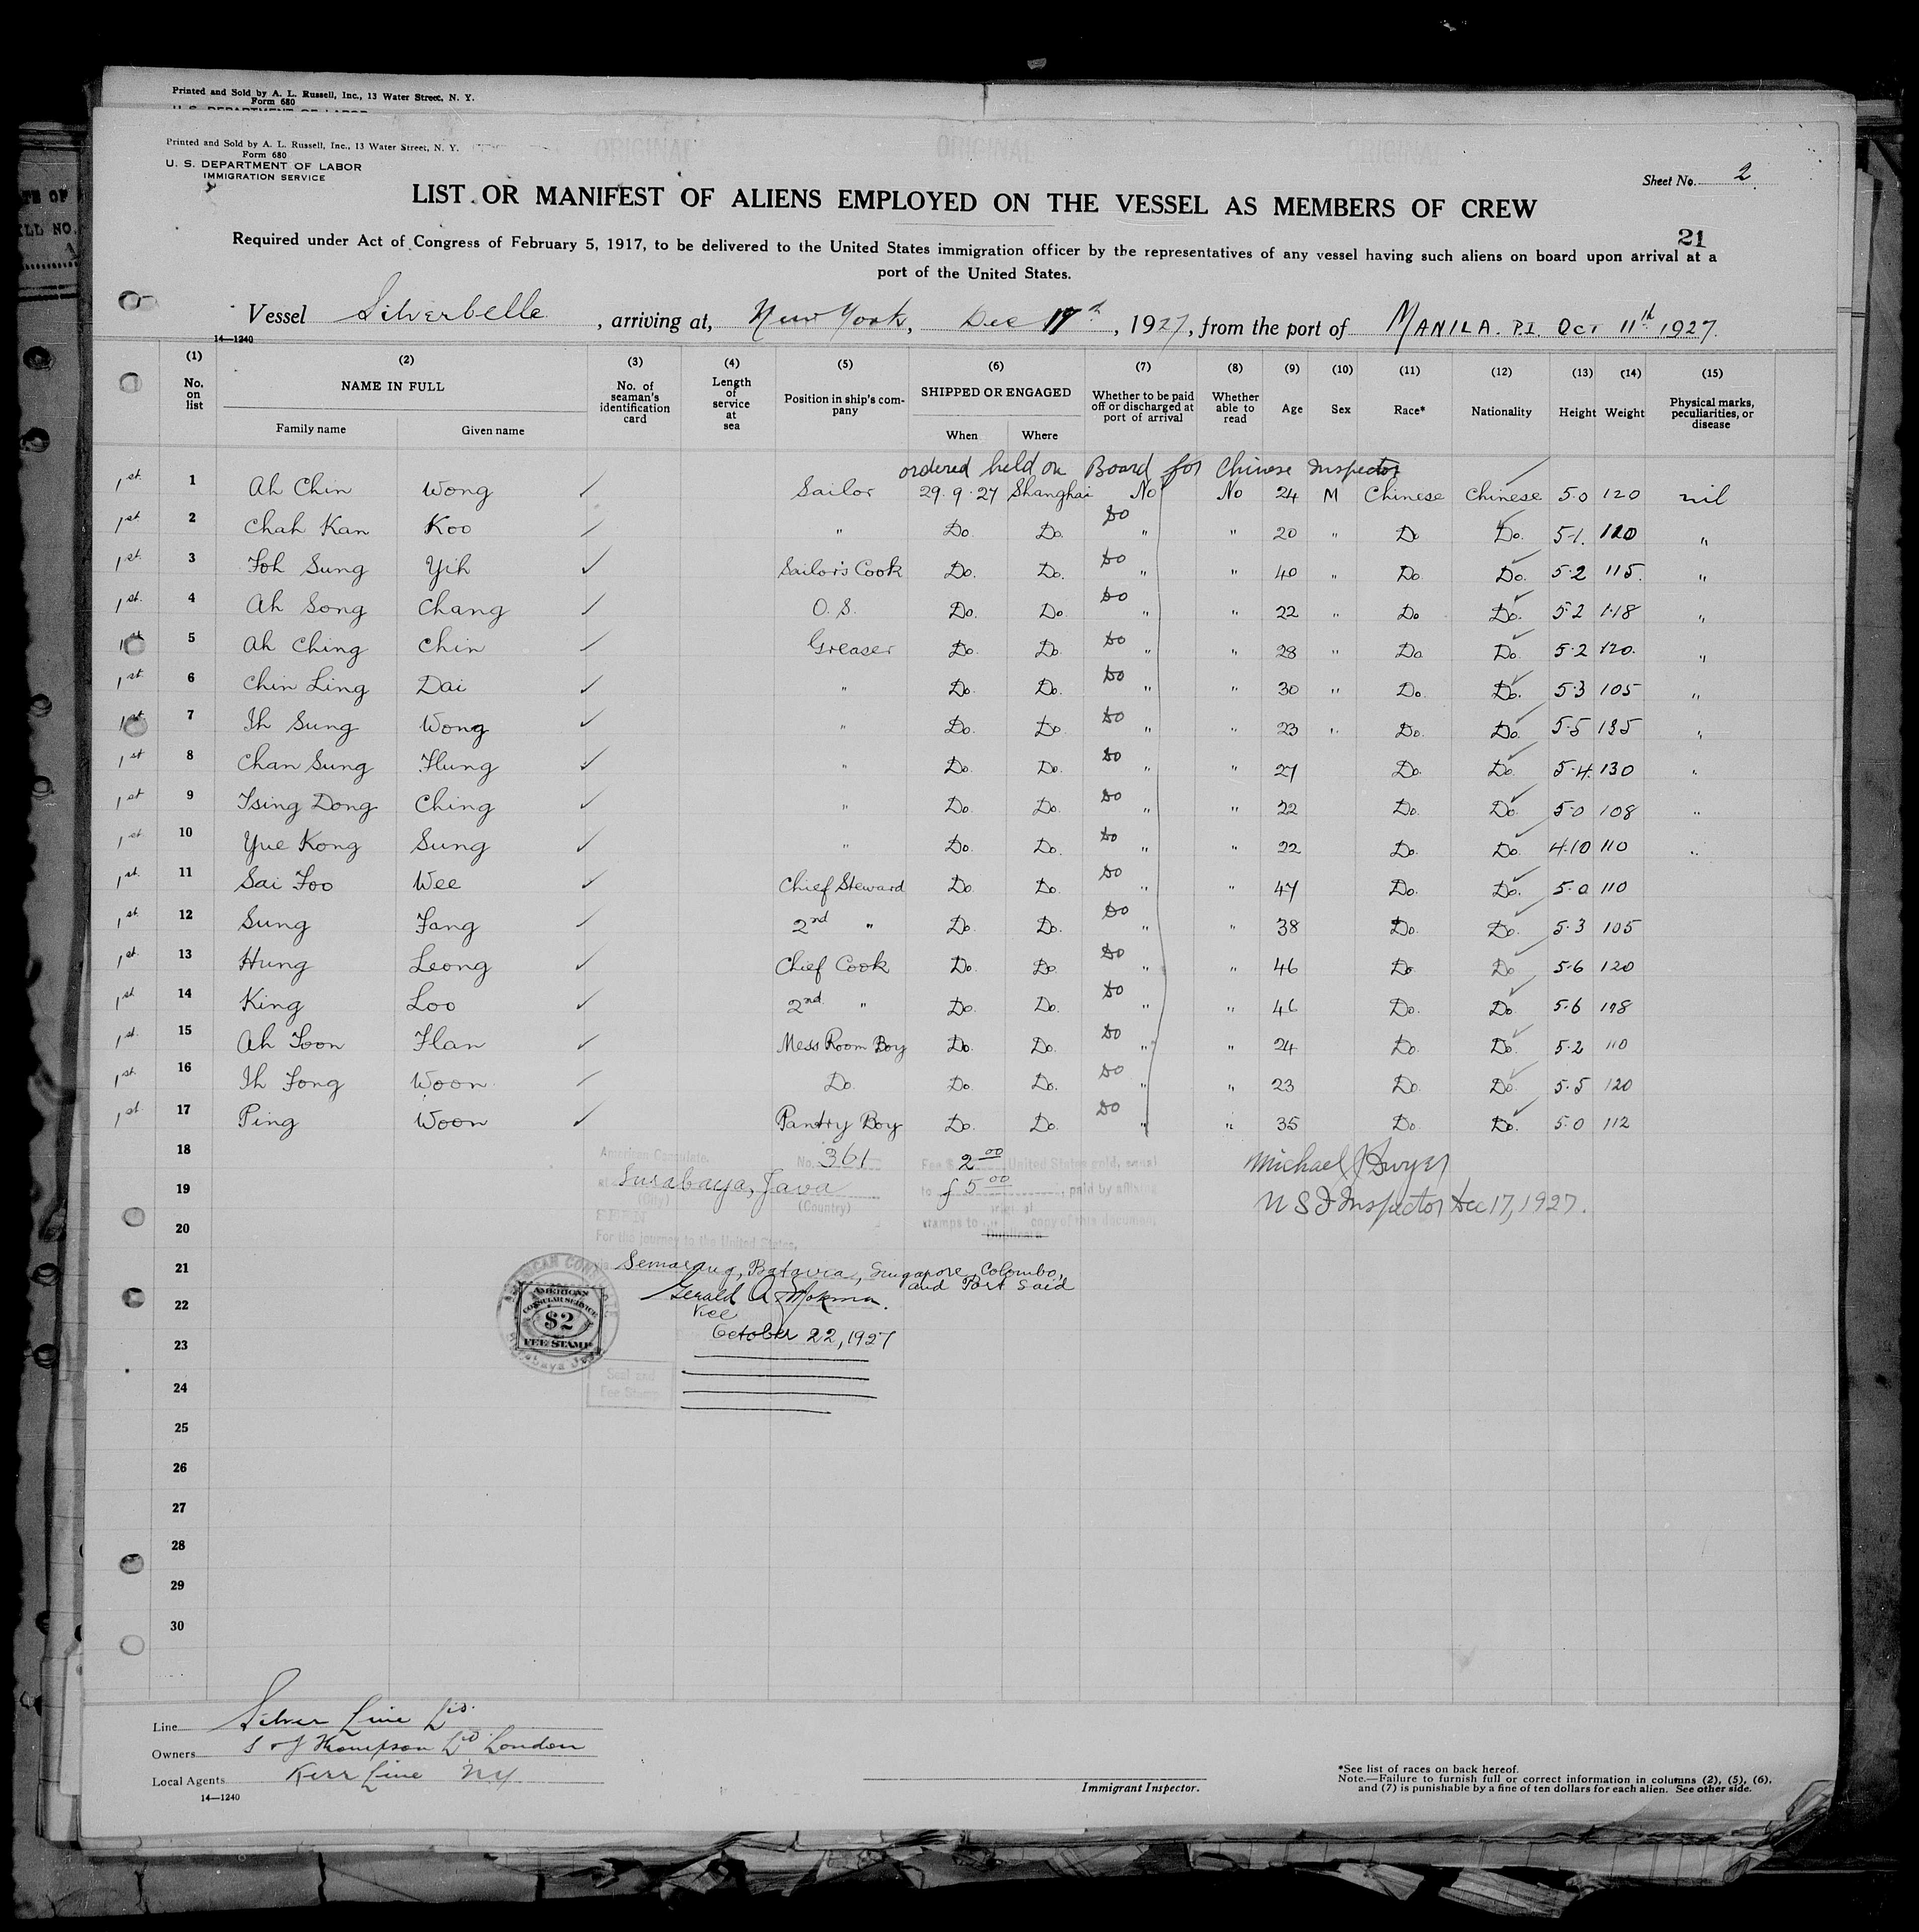 Printed and Sold by A. L. Russell, Inc., 13 Water Street, N. Y.
Form 680
U. S. DEPARTMENT OF LABOR
Printed and Sold by A. L. Russell, Inc., 13 Water Street, N. Y.
Form 680
U. S. DEPARTMENT OF LABOR
IMMIGRATION SERVICE
ORIGINAL ORIGINAL ORIGINAL
Sheet No. 2
LIST OR MANIFEST OF ALIENS EMPLOYED ON THE VESSEL AS MEMBERS OF CREW
21
Required under Act of Congress of February 5, 1917, to be delivered to the United States immigration officer by the representatives of any vessel having such aliens on board upon arrival at a
port of the United States.
Vessel Silverbelle, arriving at, New York, Dec 17th, 1927, from the port of MANILA. P.I. Oct 11th 1927.
14—1240
(1) No. on list (2) NAME IN FULL Family name Given name (3) No. of seaman's identification card (4) Length of service at sea (5) Position in ship's company (6) SHIPPED OR ENGAGED When Where (7) Whether to be paid off or discharged at port of arrival (8) Whether able to read (9) Age (10) Sex (11) Race* (12) Nationality (13) Height (14) Weight (15) Physical marks, peculiarities, or disease
ordered held on Board for Chinese Inspector
1st 1 Ah Chin Wong Sailor 29.9.27 Shanghai No No 24 M Chinese Chinese 5.0 120 nil
1st 2 Chah Kan Koo " Do. Do. Do " " 20 " Do Do. 5-1. 120 "
1st 3 Foh Sung Yih Sailor's Cook Do. Do. Do " " 40 " Do Do. 5.2 115. "
1st 4 Ah Song Chang O. S. Do. Do. Do " " 22 " Do Do. 5.2 118 "
1st 5 Ah Ching Chin Greaser Do. Do. Do " " 28 " Do Do. 5.2 120. "
1st 6 Chin Ling Dai " Do. Do. Do " " 30 " Do. Do. 5.3 105 "
1st 7 Ih Sung Wong " Do. Do. Do " " 23 " Do. Do. 5.5 135 "
1st 8 Chan Sung Hung " Do. Do. Do " " 27 Do. Do. 5.4. 130 "
1st 9 Tsing Dong Ching " Do. Do. Do " " 22 Do. Do. 5.0 108 "
1st 10 Yue Kong Sung " Do. Do. Do " " 22 Do. Do. 4.10 110 "
1st 11 Sai Foo Wee Chief Steward Do. Do. Do " " 47 Do. Do. 5.0 110
1st 12 Sung Fang 2nd " Do. Do. Do " " 38 Do. Do. 5.3 105
1st 13 Hung Leong Chief Cook Do. Do. Do " " 46 Do. Do 5.6 120
1st 14 King Loo 2nd " Do. Do. Do " " 46 Do. Do 5.6 198
1st 15 Ah Foon Han Mess Room Boy Do. Do. Do " " 24 Do. Do. 5.2 110
1st 16 Ih Fong Woon Do. Do. Do. Do " " 23 Do. Do. 5.5 120
1st 17 Ping Woon Pantry Boy Do. Do. Do " " 35 Do. Do. 5.0 112
18 American Consulate, No. 361 Fee $ 2.00 United States gold, equal Michael J Dwyer
19 at Surabaya, Java to f 5.00, paid by affixing U S I Inspector Dec 17, 1927.
(City) (Country)
SEEN
20 stamps to original copy of this document
Duplicate
For the journey to the United States,
21 Semarang, Batavia, Singapore, Colombo,
and Port Said
22 Gerald A Mokma.
Vice
AMERICAN CONSULAR SERVICE $2 FEE STAMP
October 22, 1927
23
24 Seal and
Fee Stamp
25
26
27
28
29
30
Line Silver Line Ltd.
Owners S & J Thompson Ltd London
Local Agents Kerr Line NY
14—1240
Immigrant Inspector.
*See list of races on back hereof.
Note.—Failure to furnish full or correct information in columns (2), (5), (6),
and (7) is punishable by a fine of ten dollars for each alien. See other side.